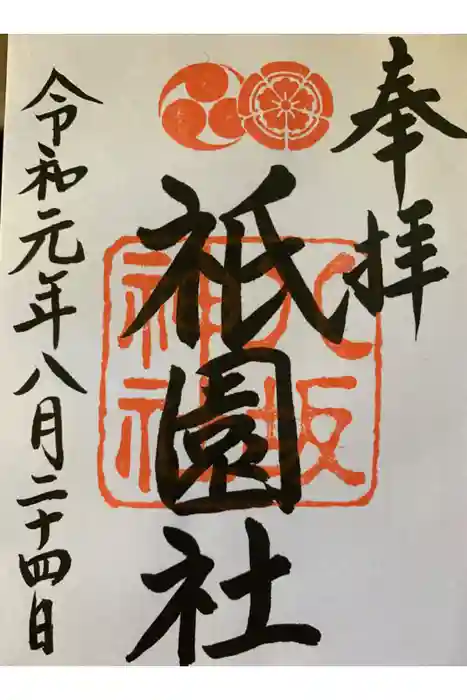 奉拝
八坂神社
祇園社
令和元年八月二十四日